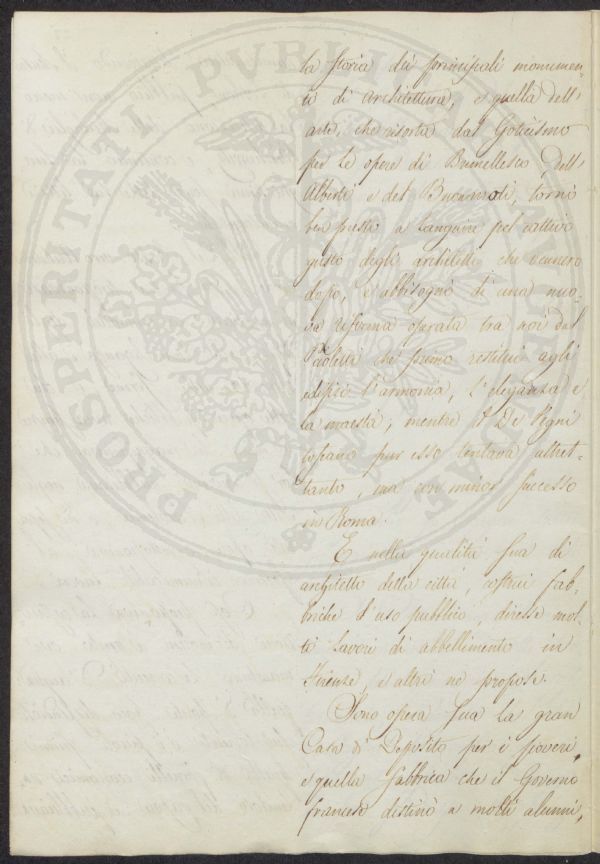 la storia dei principali monumen-
ti di Architettura, e quella dell'
arte, che risorta dal Goticismo
per le opere di Brunellesco, dell'
Alberti e del Buonarroti, tornò
ben presto a languire pel cattivo
gusto degli architetti che vennero
dopo, e abbisognò di una nuo-
va riforma operata tra noi dal
Paoletti che primo restituì agli
edifizi l'armonia, l'eleganza e
la maestà; mentre il De Vegni
toscano pur esso tentava altret-
tanto, ma con minor successo
in Roma.
E nella qualità sua di
architetto della città, costruì fab-
briche d'uso pubblico, diresse mol-
ti lavori di abbellimento in
Firenze, e altri ne propose.
Sono opera sua la gran
Casa di Deposito per i poveri,
e quella fabbrica che il Governo
francese destinò a molti alunni,
PROSPERITATI PVBLICAE AVGENDAE